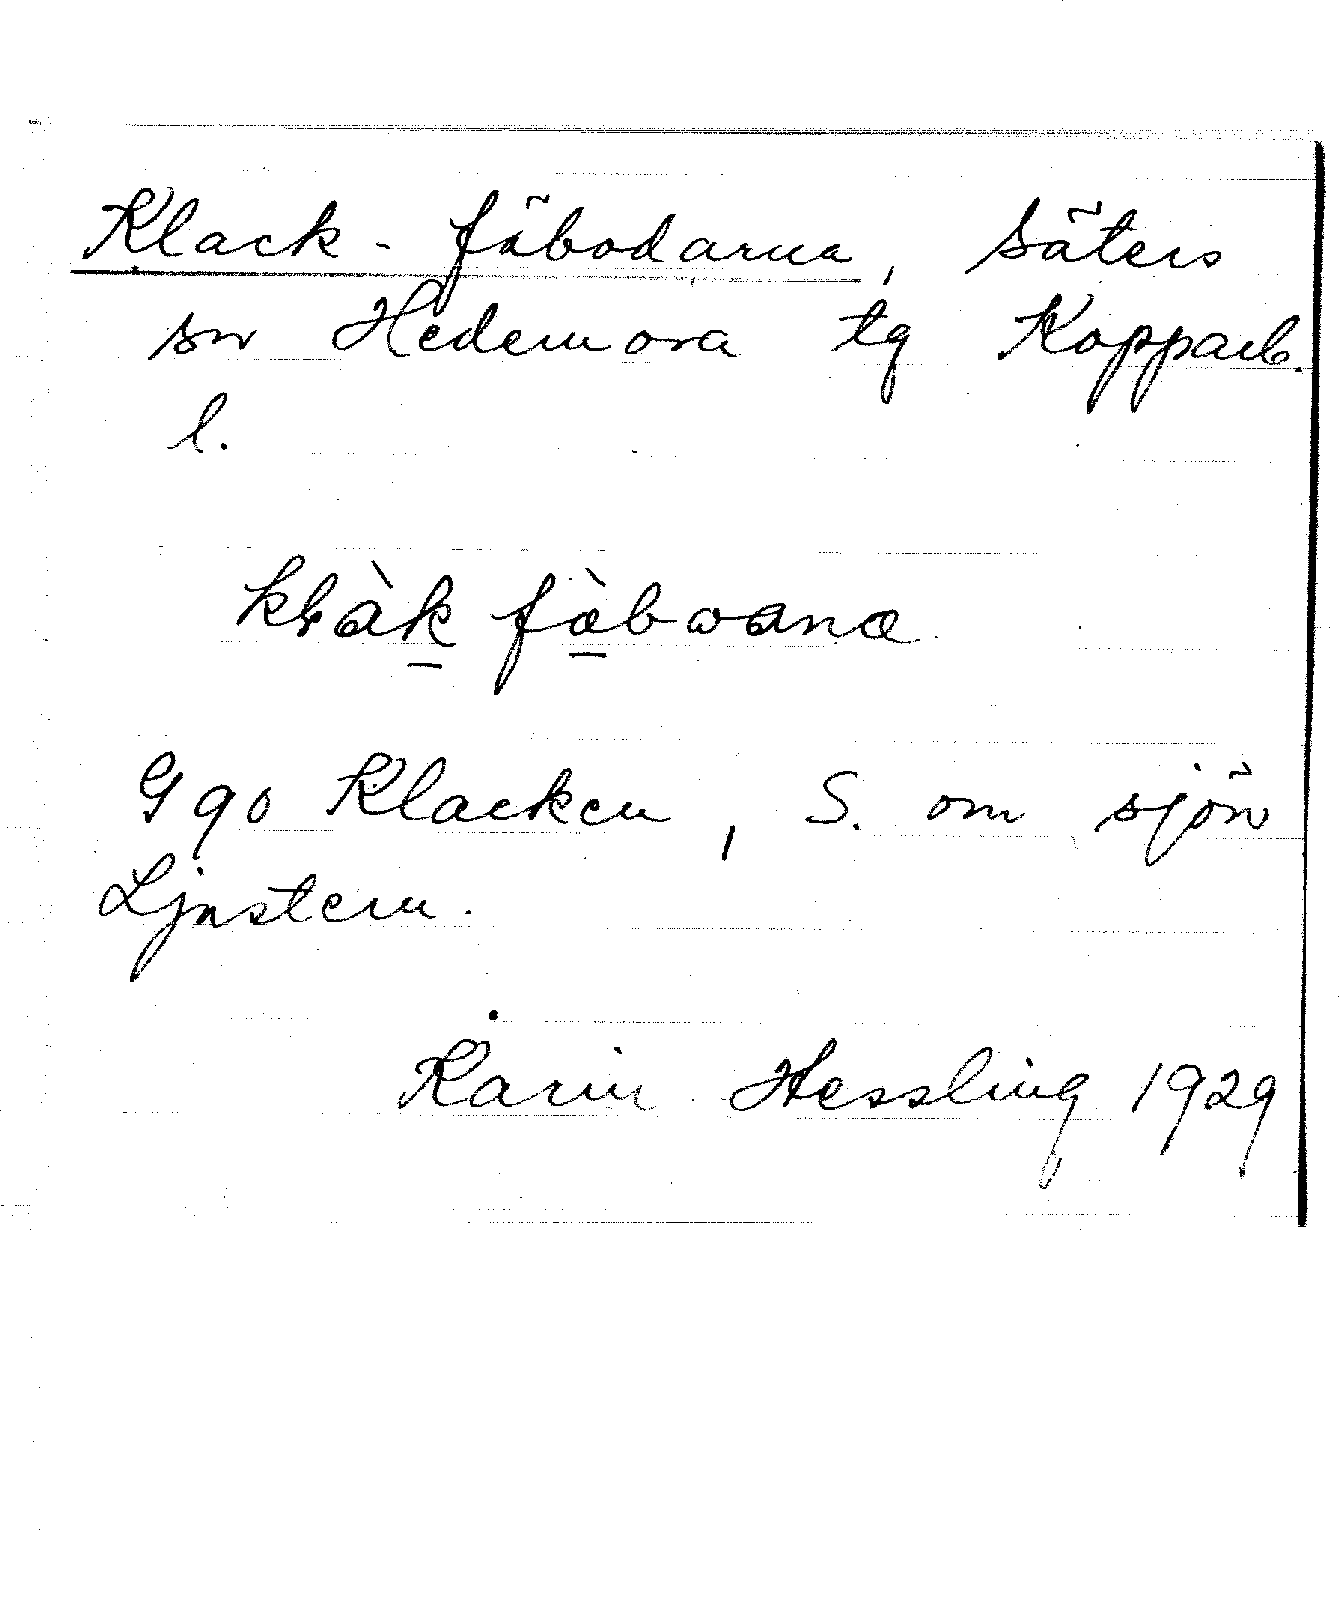 Klack-fäbodarna, Säters
sn Hedemora tg Kopparb.
l.
kɬàk fæ̀bωana
G 90 Klacken, S. om sjön
Ljustern.
Karin Hessling 1929